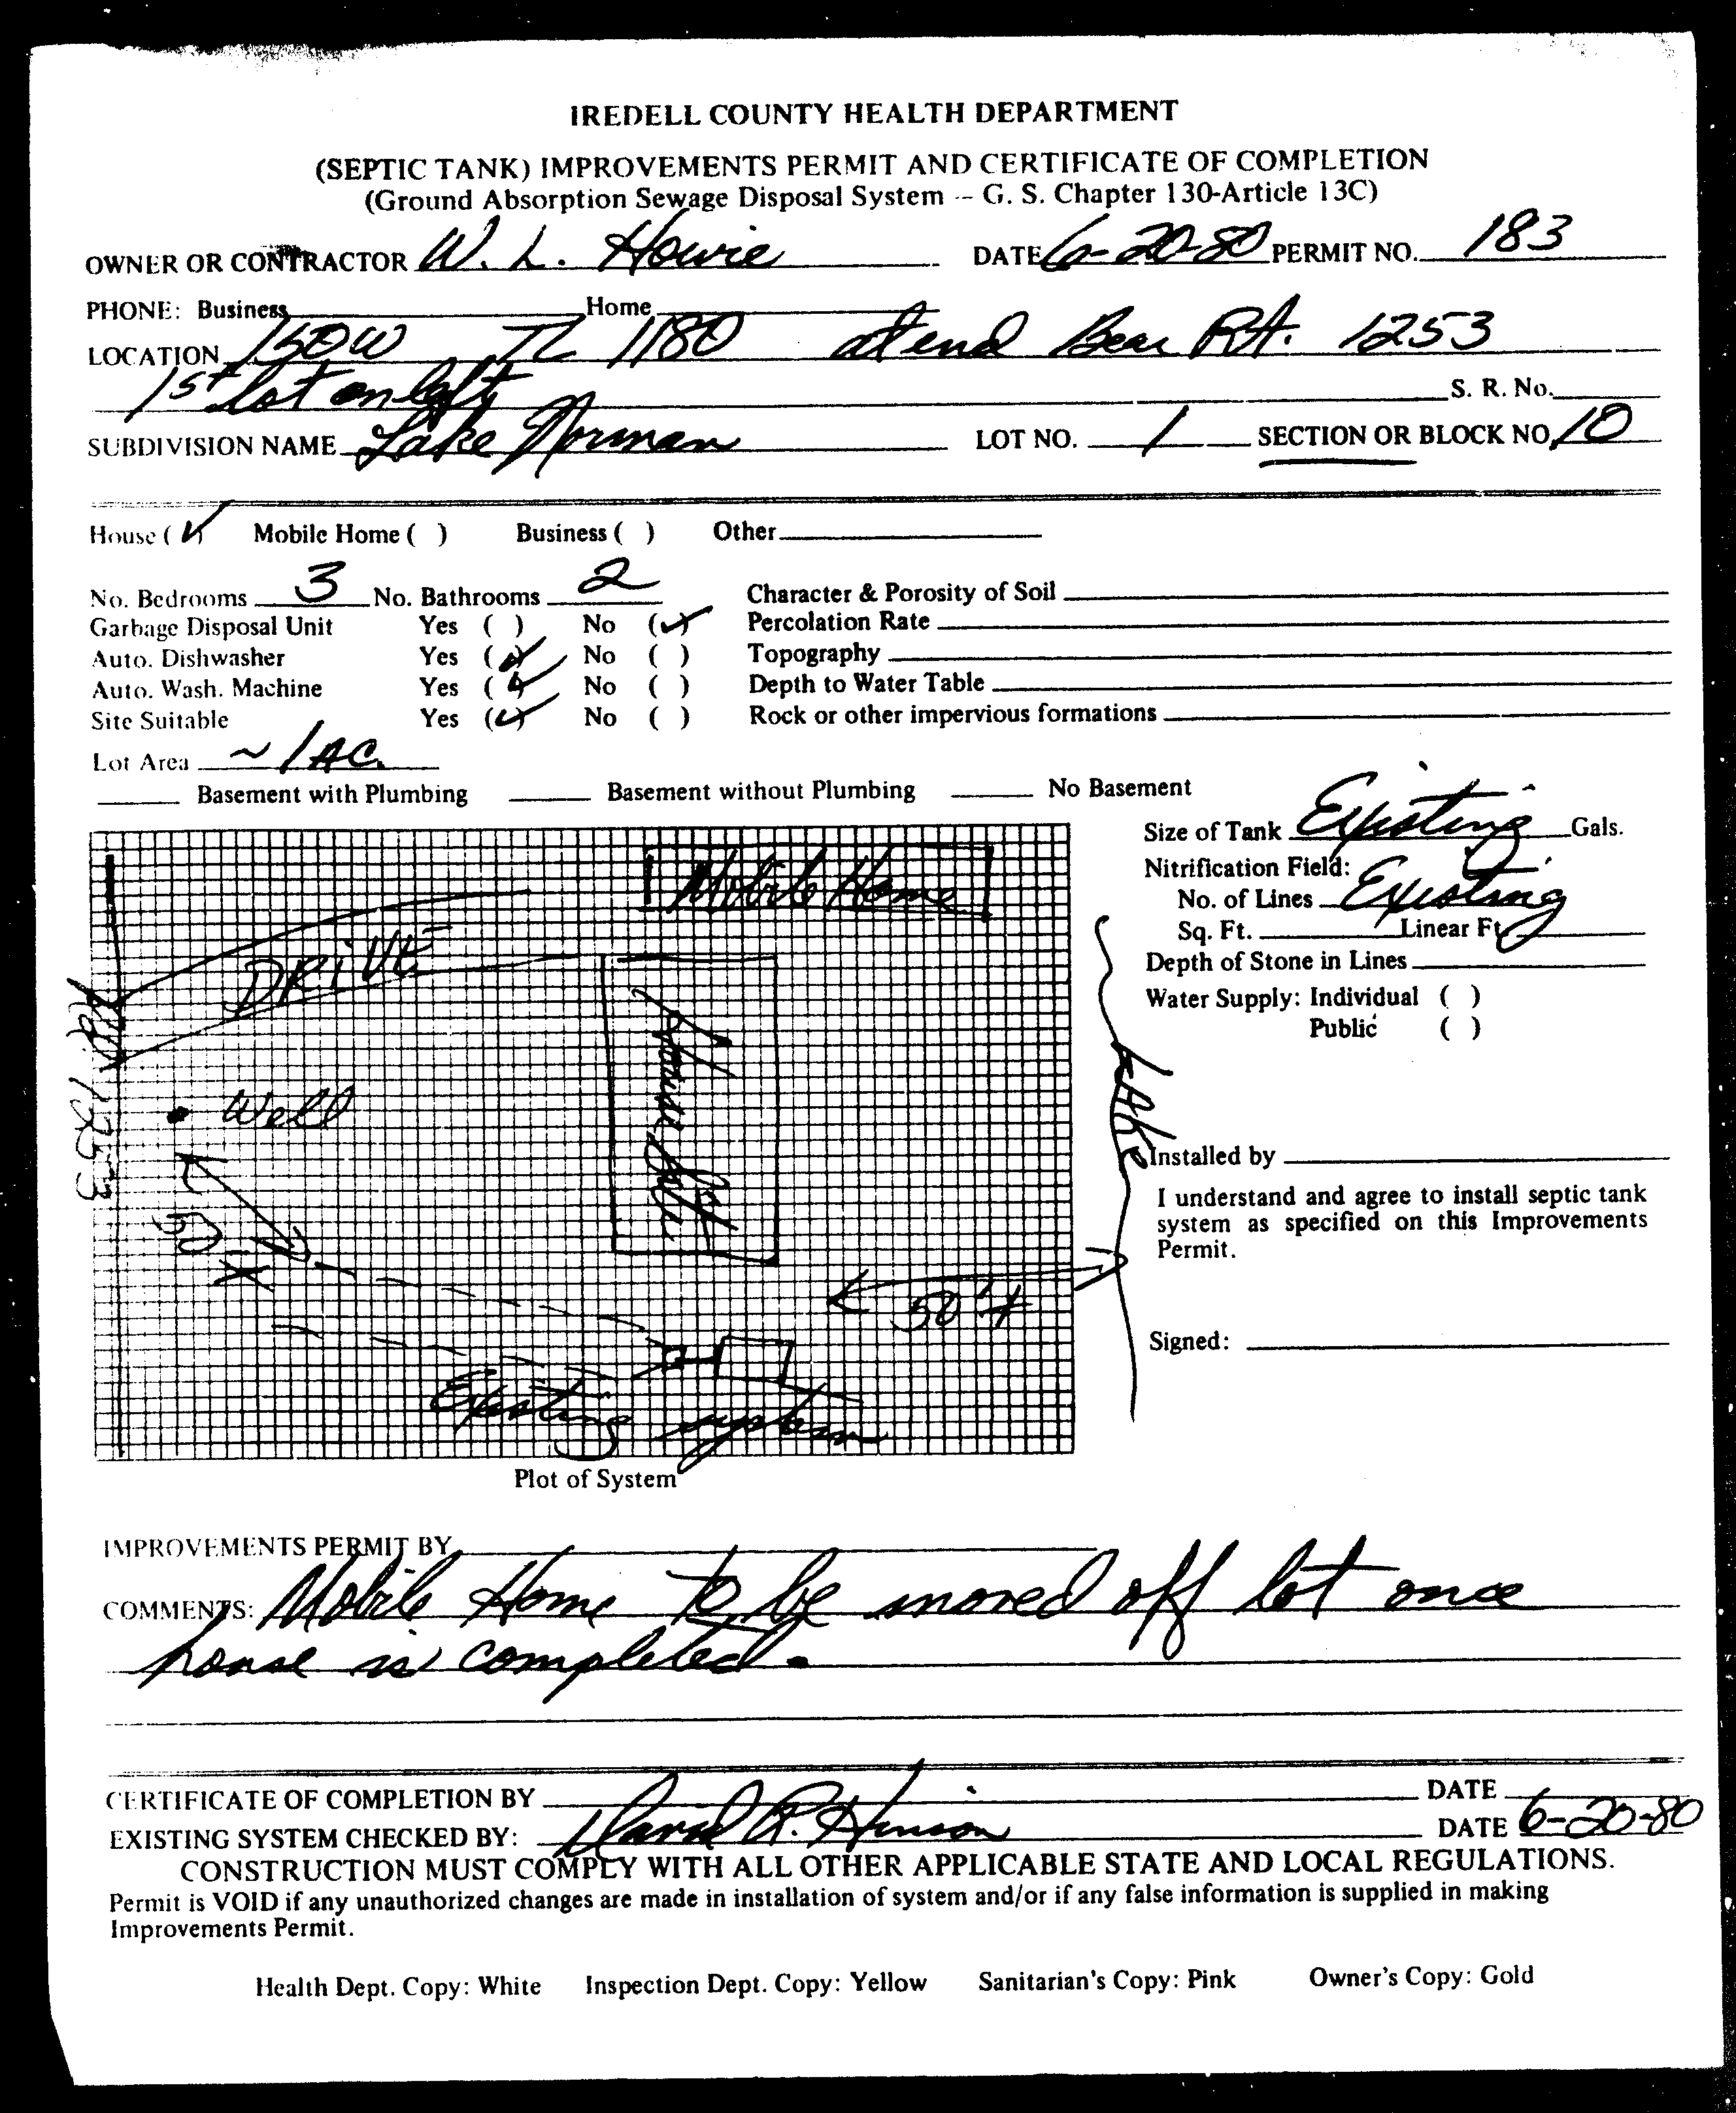 IREDELL COUNTY HEALTH DEPARTMENT
(SEPTIC TANK) IMPROVEMENTS PERMIT AND CERTIFICATE OF COMPLETION
(Ground Absorption Sewage Disposal System -- G. S. Chapter 130-Article 13C)
OWNER OR CONTRACTOR W. L. Howie DATE 6-20-80 PERMIT NO. 183
PHONE: Business Home
LOCATION 150W TL 1180 at end Bear Rt. 1253
1st lot on left S. R. No.
SUBDIVISION NAME Lake Norman LOT NO. 1 SECTION OR BLOCK NO. 10
House (✓) Mobile Home ( ) Business ( ) Other
No. Bedrooms 3 No. Bathrooms 2 Character & Porosity of Soil
Garbage Disposal Unit Yes ( ) No (✓) Percolation Rate
Auto. Dishwasher Yes (✓) No ( ) Topography
Auto. Wash. Machine Yes (✓) No ( ) Depth to Water Table
Site Suitable Yes (✓) No ( ) Rock or other impervious formations
Lot Area ~ 1 AC.
Basement with Plumbing Basement without Plumbing No Basement
Size of Tank Existing Gals.
Nitrification Field:
No. of Lines Existing
Sq. Ft. Linear Ft.
Depth of Stone in Lines
Water Supply: Individual ( )
Public ( )
Mobile Home
DRIVE
1253
Well
House Site
Lake
50 +
50'+
Existing system
Installed by
I understand and agree to install septic tank
system as specified on this Improvements
Permit.
Signed:
Plot of System
IMPROVEMENTS PERMIT BY
COMMENTS: Mobile Home To be moved off lot once
house is completed.
CERTIFICATE OF COMPLETION BY DATE
EXISTING SYSTEM CHECKED BY: David R. Hinson DATE 6-20-80
CONSTRUCTION MUST COMPLY WITH ALL OTHER APPLICABLE STATE AND LOCAL REGULATIONS.
Permit is VOID if any unauthorized changes are made in installation of system and/or if any false information is supplied in making
Improvements Permit.
Health Dept. Copy: White Inspection Dept. Copy: Yellow Sanitarian's Copy: Pink Owner's Copy: Gold